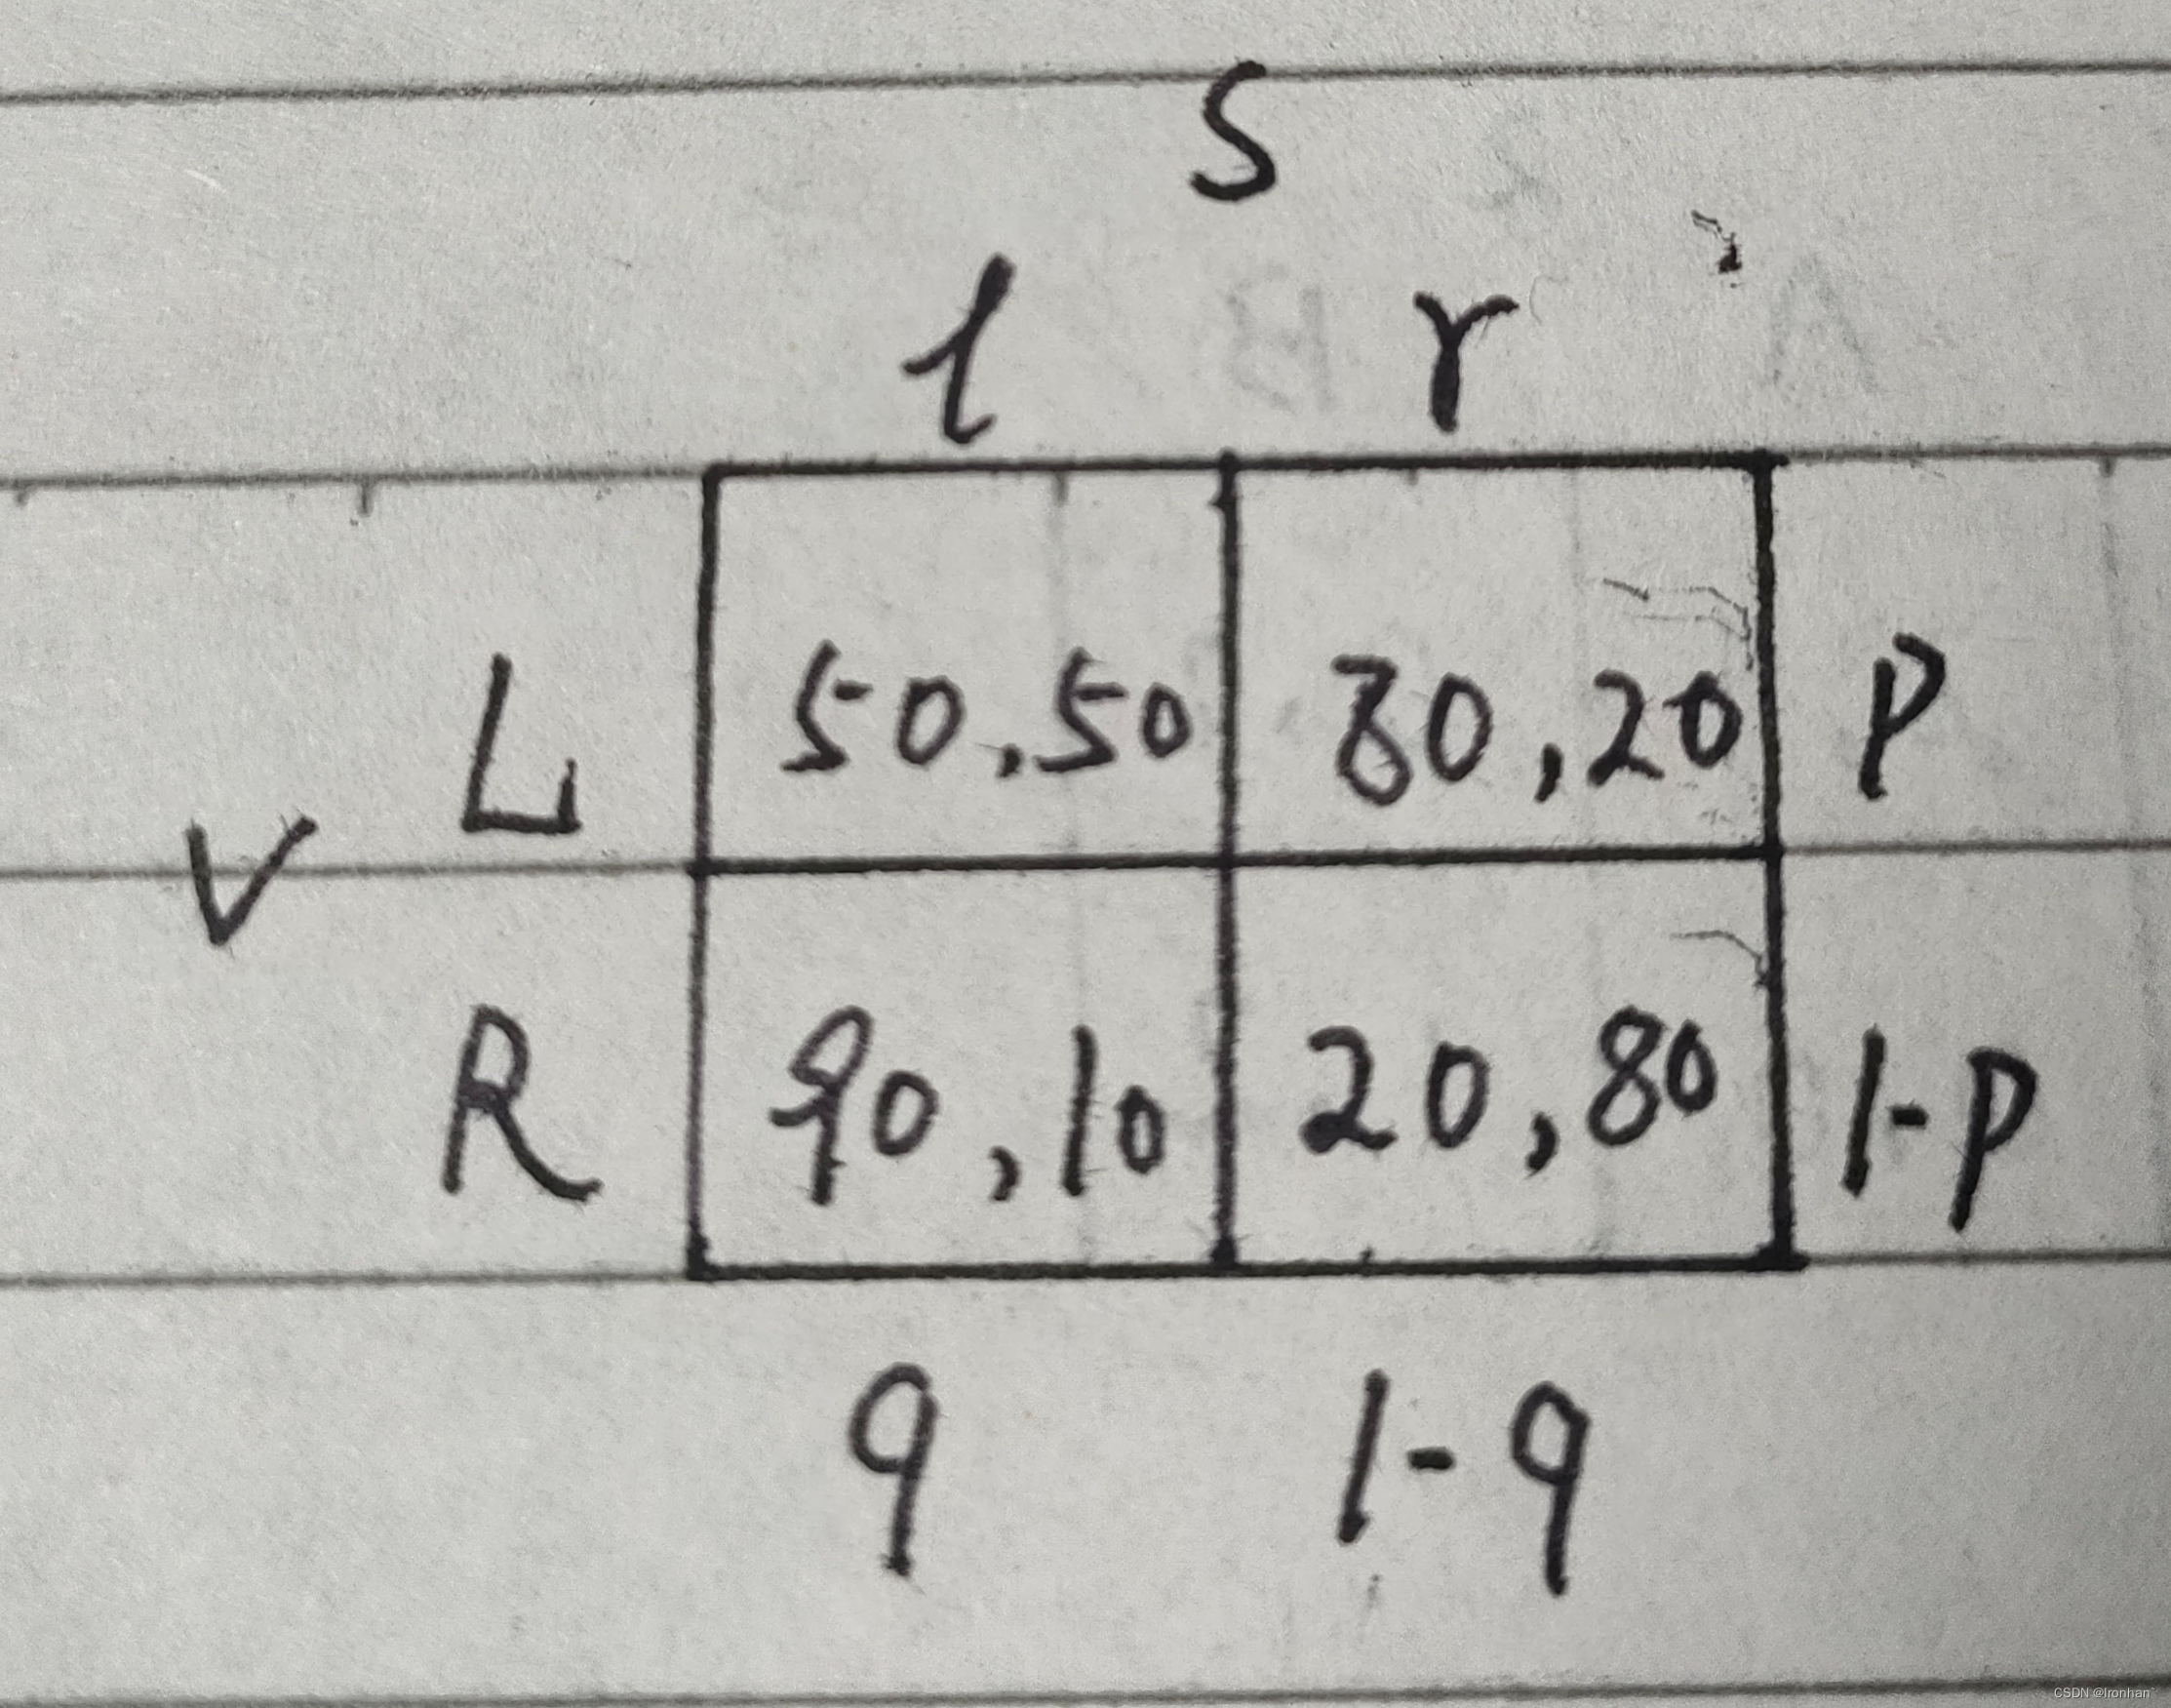 S
l r
L 50,50 80,20 P
V
R 90,10 20,80 1-P
q 1-q
CSDN @Ironhan